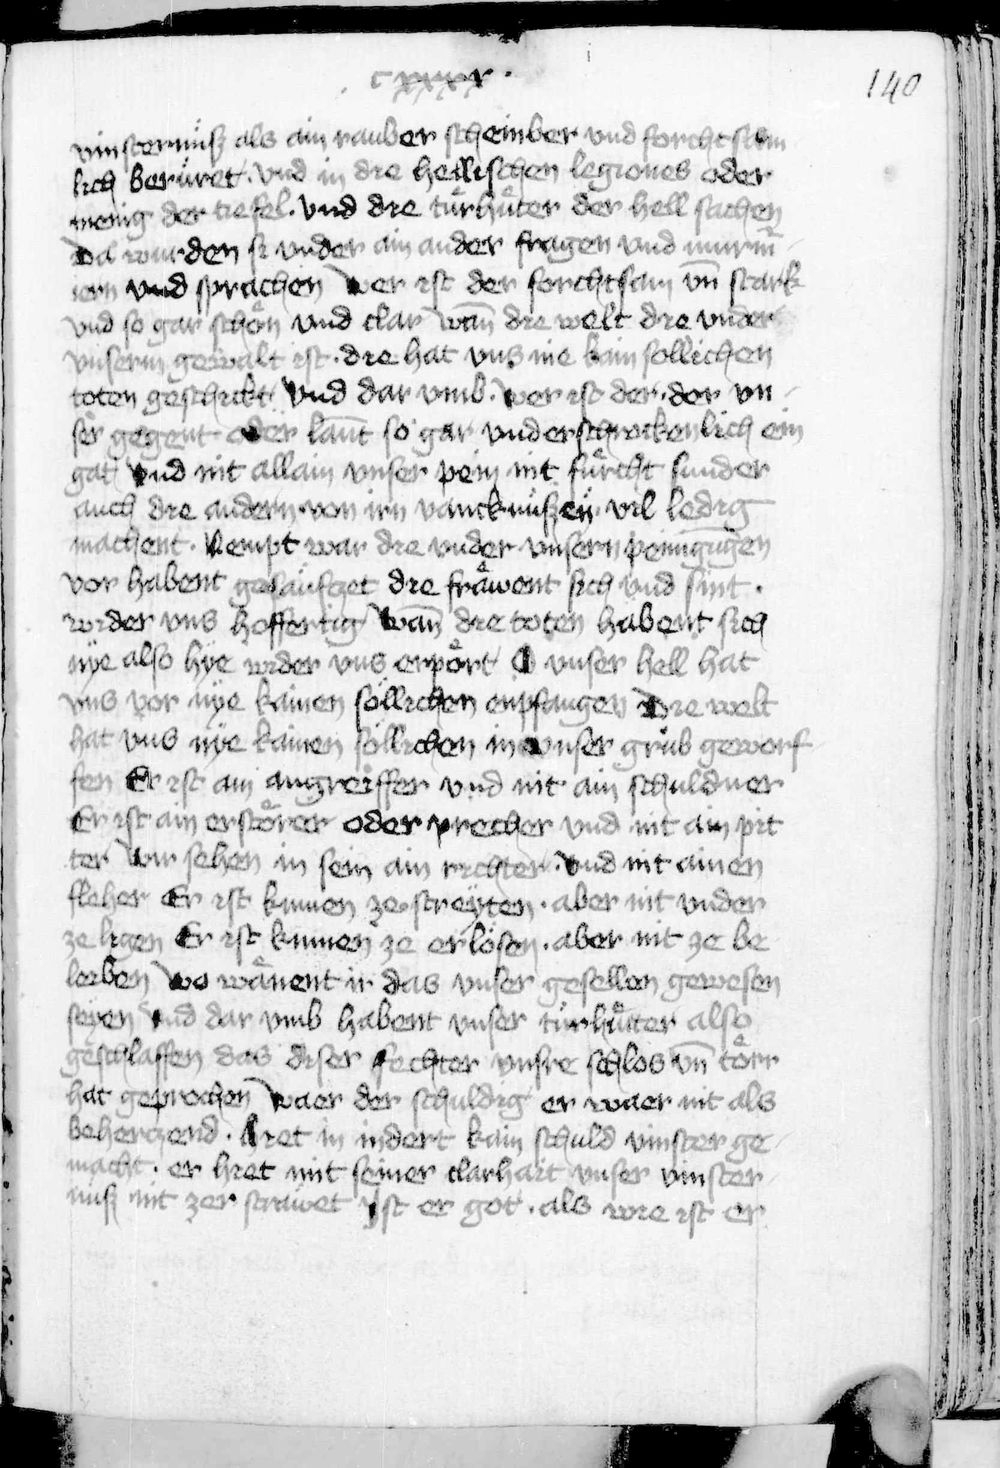 cxxxx.
140
vinsternüß als ain rauber scheinber vnd forchtsam
lich berüret. Vnd in die hellischen legiones oder
menig der tiefel. Vnd die türhůter der hell sachen
Da wurden si vnder ain ander fragen vnd murm̄
iern vnd sprachen Wer ist der forchtsam vn̄ stark
vnd so gar schön vnd clar Wan̄ die welt die vnder
vnserm gewalt ist. die hat vns nie kain sollichen
toten geschickt Vnd dar vmb. Wer ist der. der vn
ser gegent oder lant so gar vnderschrockenlich ein
gat Vnd nit allain vnser pein nit fürcht sunder
auch die andern von irn vancknüßen vil ledig
machent. die vnder vnsern peinigungen
vor habent gesäuftzet die fräwent sich vnd sint.
wider vns hoffertig Wan̄ die toten habent sich
nye also hye wider vns erpört O vnser hell hat
vns vor nye kainen söllichen enpfangen Die welt
hat vns nye kainen söllichen in vnser grůb geworf
fen Er ist ain angreiffer vnd nit ain schuldner
Er ist ain erstörer oder precher vnd nit ain pit
ter Wir sehen in sein ain richter. Vnd nit ainen
fleher Er ist kumen ze streyten. aber nit vnder
ze ligen Er ist kumen ze erlösen. aber nit ze be
leiben Wo wänent ir das vnser gesellen gewesen
seyen Vnd dar vmb habent vnser türhůtter also
geschlaffen das diser fechter vnsre schlos vn̄ törr
hat geprochen Waer der schuldig er waer nit als
beherczend. in indert kain schuld vinster ge
macht. er hiet mit seiner clarhait vnser vinster
nüß nit zer strawet Ist er got. als wie ist er